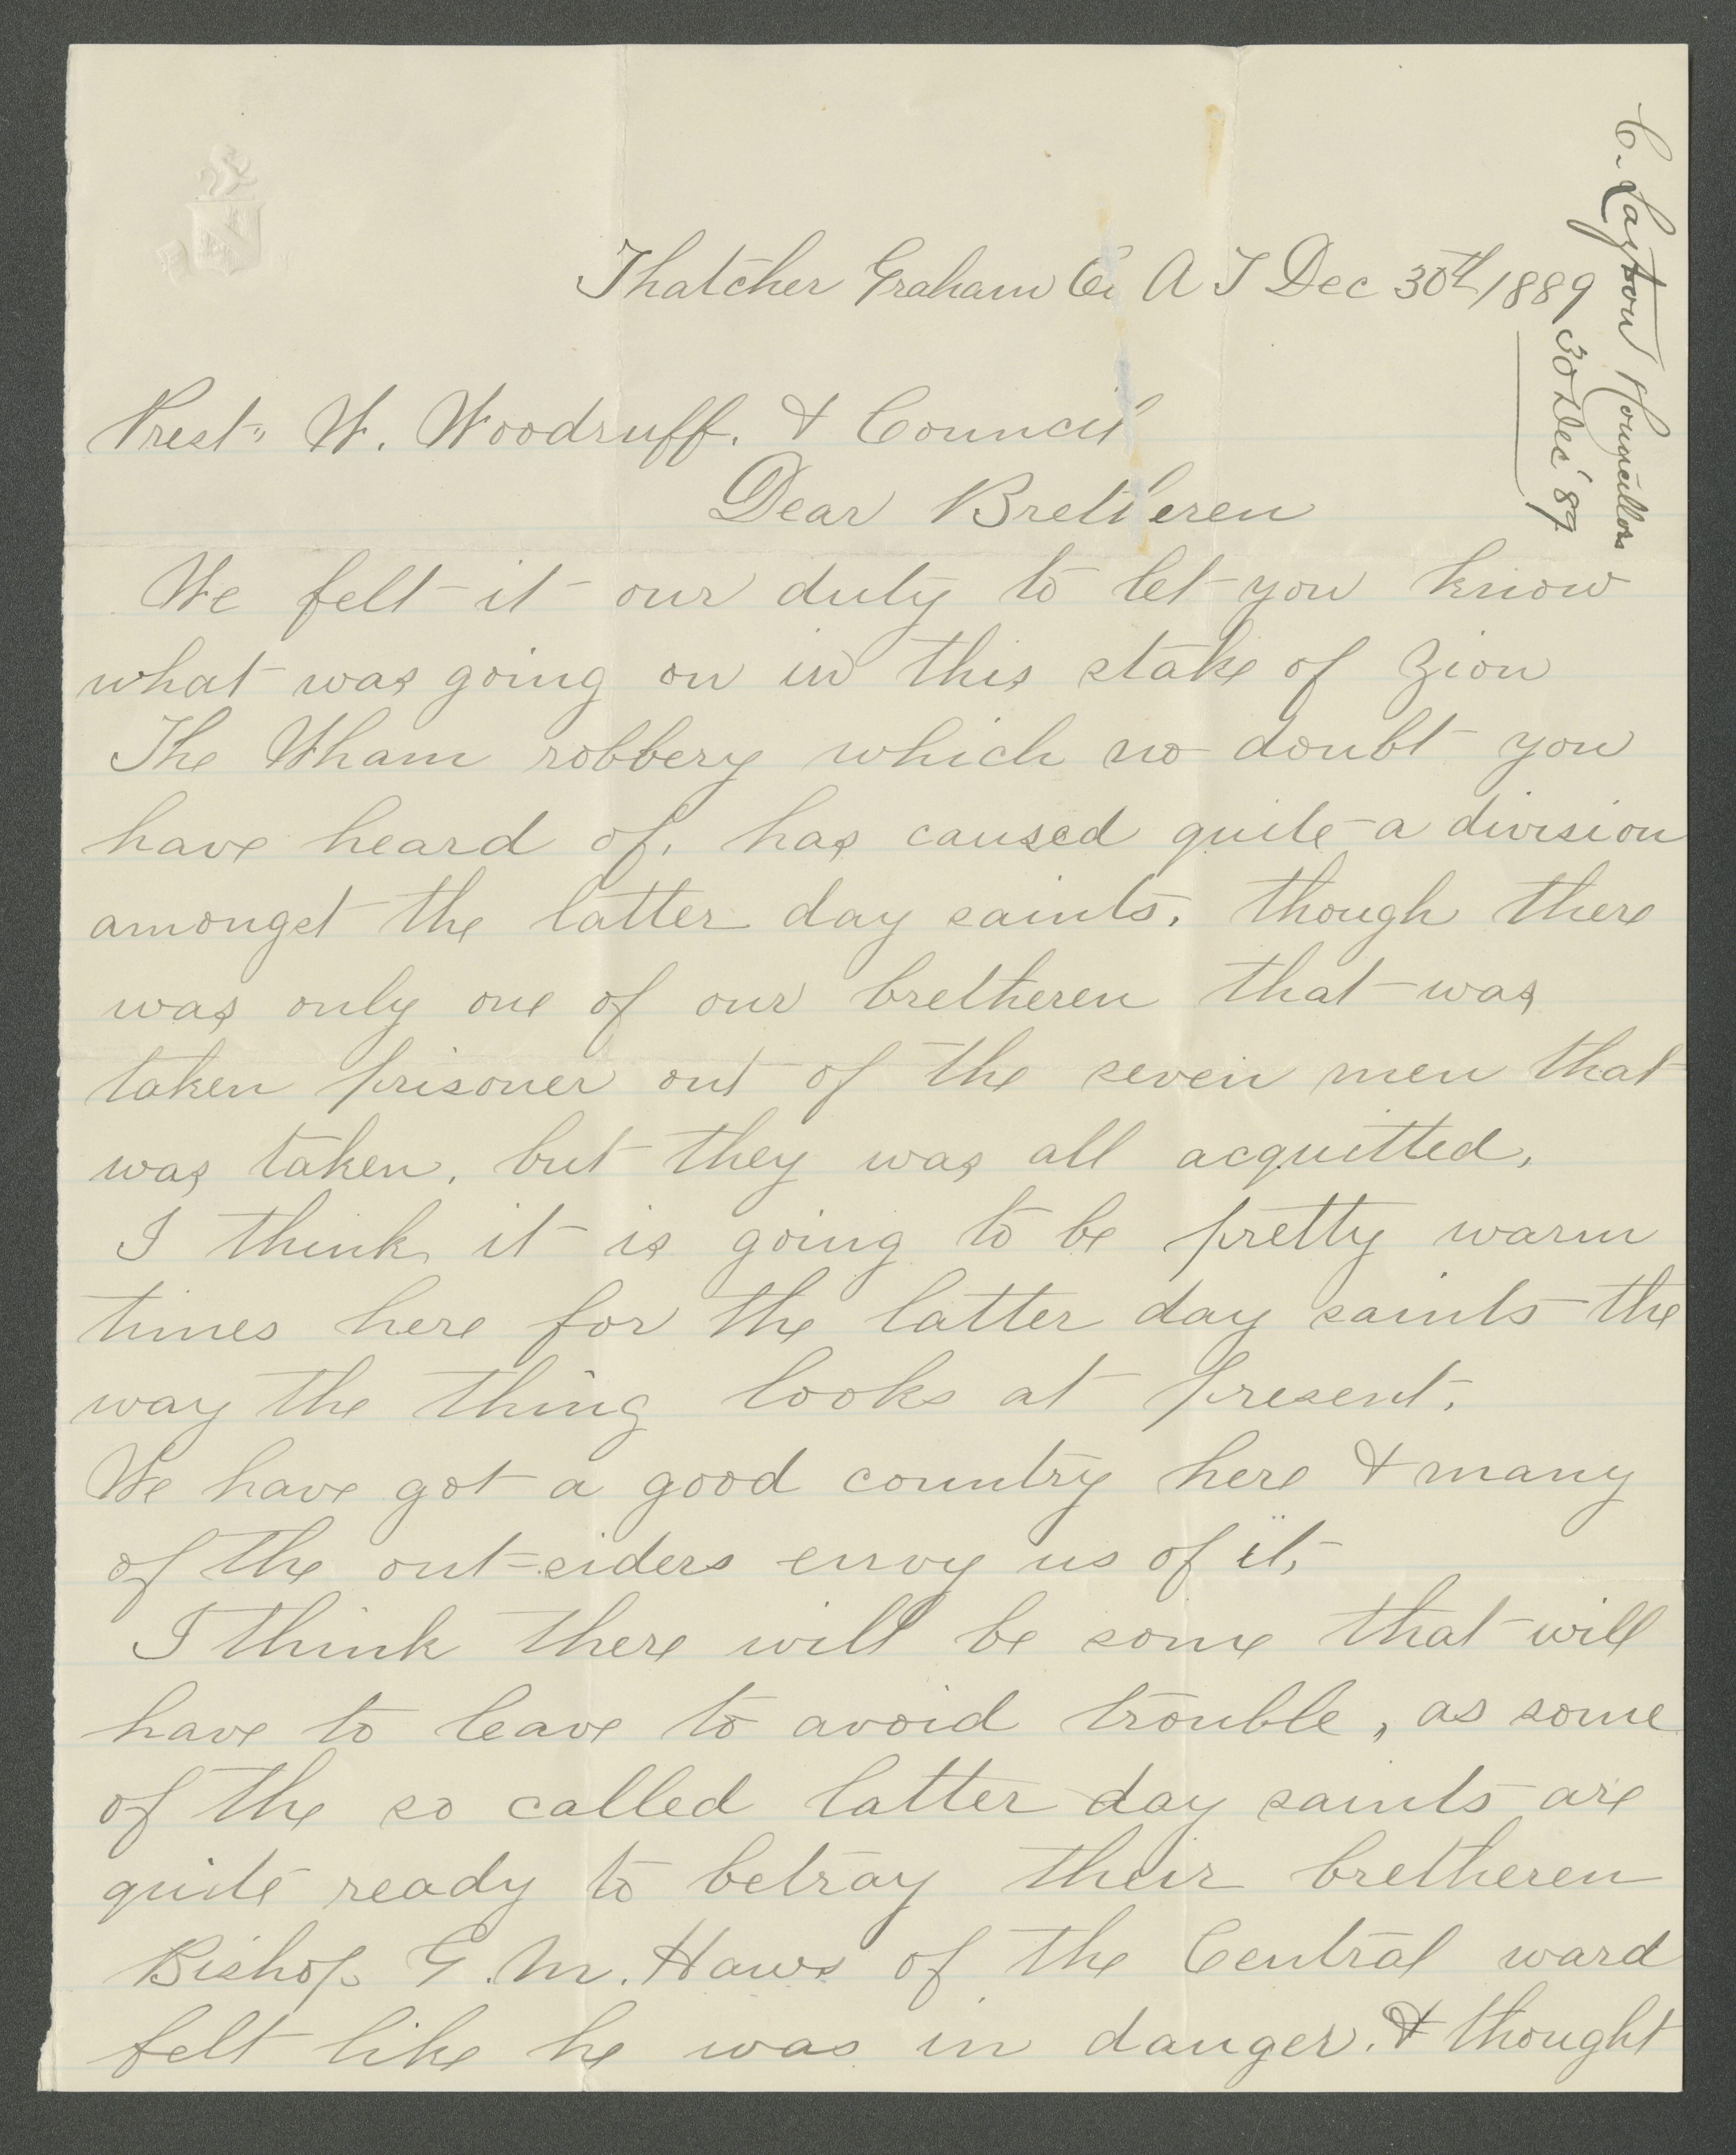 Thatcher Graham Co A T Dec 30th 1889
C. Layton & Councillors
30 Dec '89
Prest., W. Woodruff. & Council
Dear Bretheren
We felt it our duty to let you know
what was going on in this stake of Zion
The Wham robbery which no doubt you
have heard of, has caused quite a division
amongst the latter day saints, though there
was only one of our bretheren that was
taken prisoner out of the seven men that
was taken, but they was all acquitted,
I think it is going to be pretty warm
times here for the latter day saints the
way the thing looks at present,
We have got a good country here & many
of the out=siders envoy us of it,
I think there will be some that will
have to leave to avoid trouble, as some
of the so called latter day saints are
quite ready to betray their bretheren
Bishop G. M. Haws of the Central ward
felt like he was in danger. & thought